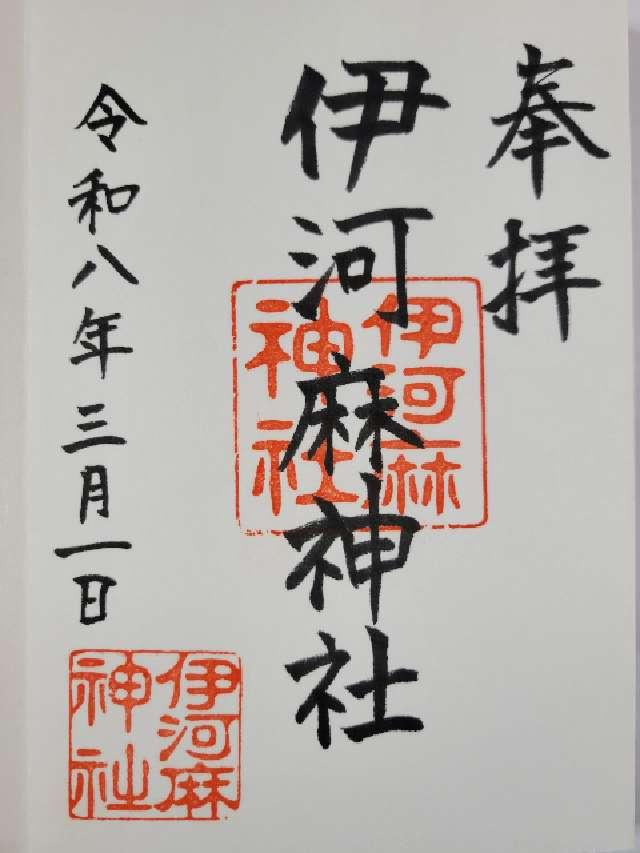 奉拝
伊河麻神社
伊河麻
神社
令和八年三月一日
伊河麻
神社